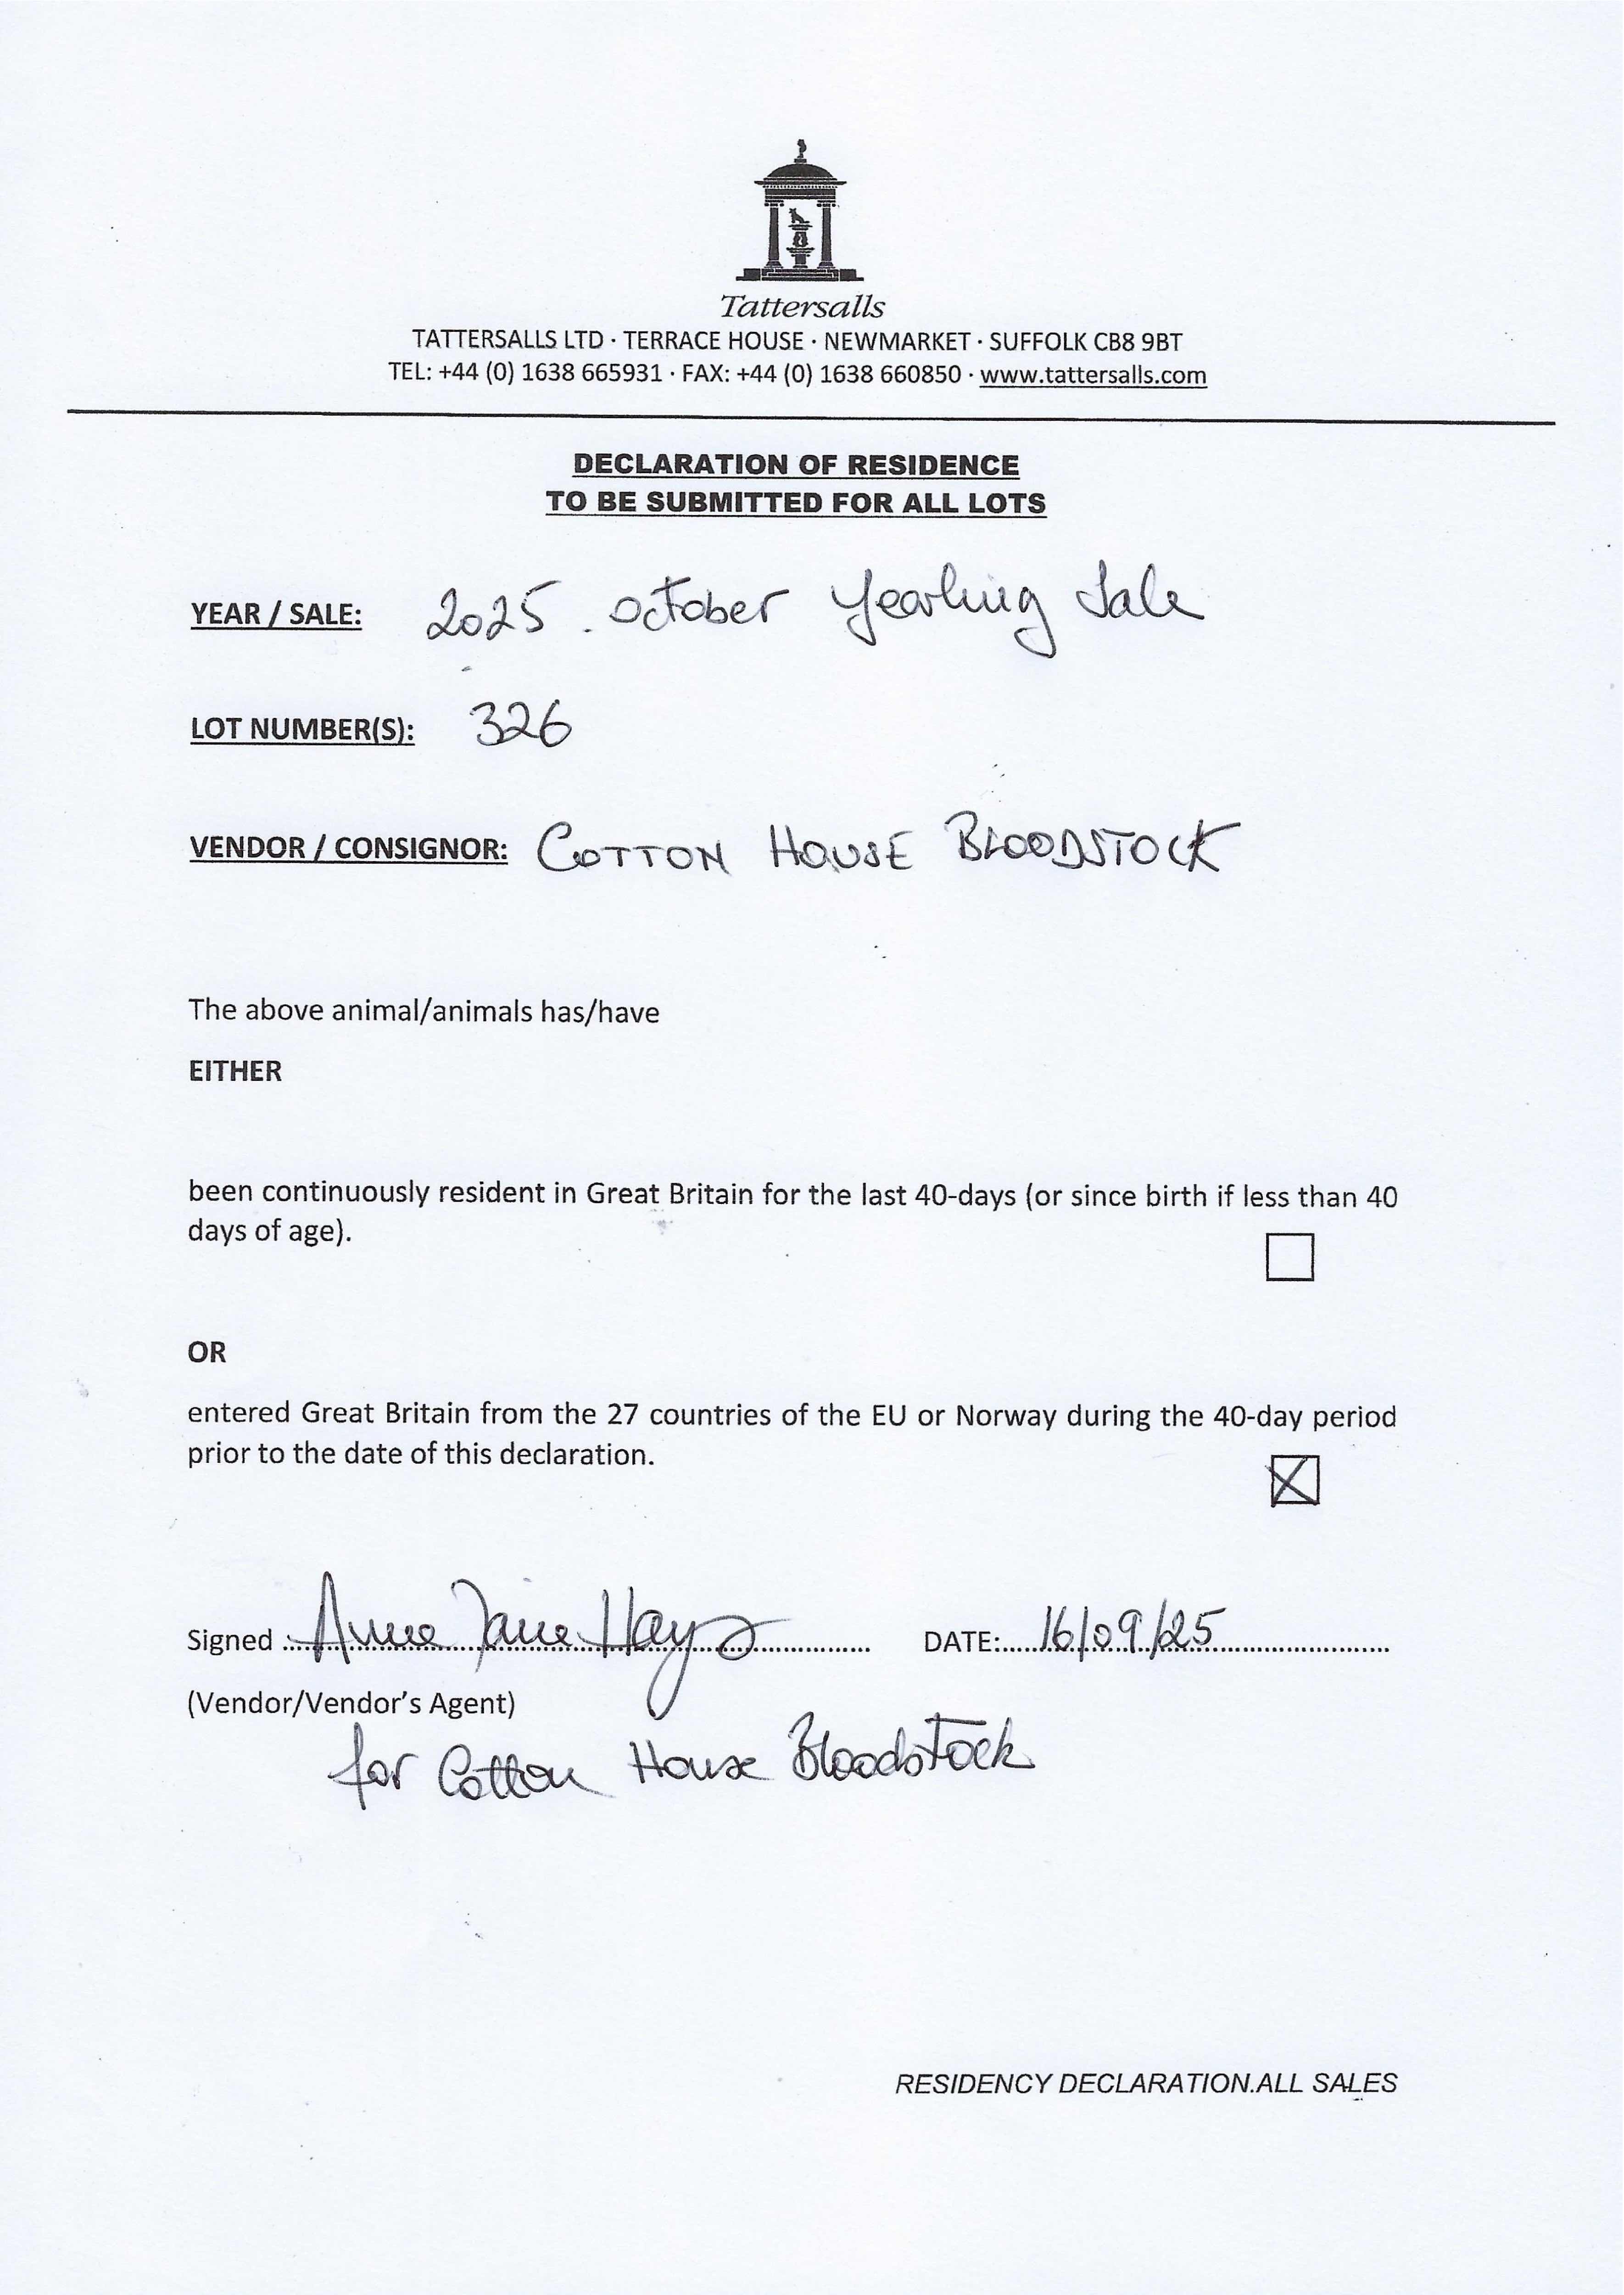 Tattersalls
TATTERSALLS LTD · TERRACE HOUSE · NEWMARKET · SUFFOLK CB8 9BT
TEL: +44 (0) 1638 665931 · FAX: +44 (0) 1638 660850 · www.tattersalls.com
DECLARATION OF RESIDENCE
TO BE SUBMITTED FOR ALL LOTS
YEAR / SALE: 2025 . October Yearling Sale
LOT NUMBER(S): 326
VENDOR / CONSIGNOR: COTTON HOUSE BLOODSTOCK
The above animal/animals has/have
EITHER
been continuously resident in Great Britain for the last 40-days (or since birth if less than 40
days of age).
OR
entered Great Britain from the 27 countries of the EU or Norway during the 40-day period
prior to the date of this declaration.
Signed Anne Jane Hays DATE: 16/09/25
(Vendor/Vendor's Agent)
for Cotton House Bloodstock
RESIDENCY DECLARATION.ALL SALES